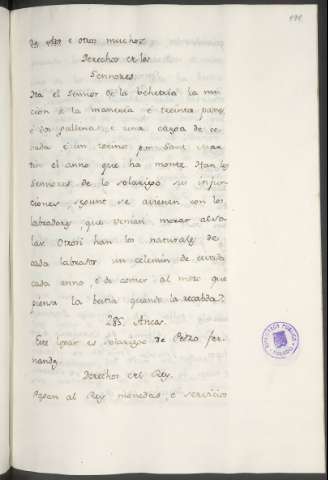 e otros muchos
Derechos de los
Sennores
Ha el Sennor de la behetria la
cion e la manneria e treinta panes
e dos gallinas, e una de ce
vada e un tocino por Sant Mar
tin el anno que ha monte. Han los
Sennores de lo solariego su infur
ciones, segunt se avienen con los
labradores, que venian morar al so
lar. Otrosi han los naturales de
cada labrador un celemin de cevada
cada anno, e de comer al mozo que
piensa la bestia quando la recabda.
285. Ancas.
Este logar es solariego de Pedro Fer
nandez.
Derechos del Rey.
Pagan al Rey monedas, e servicios